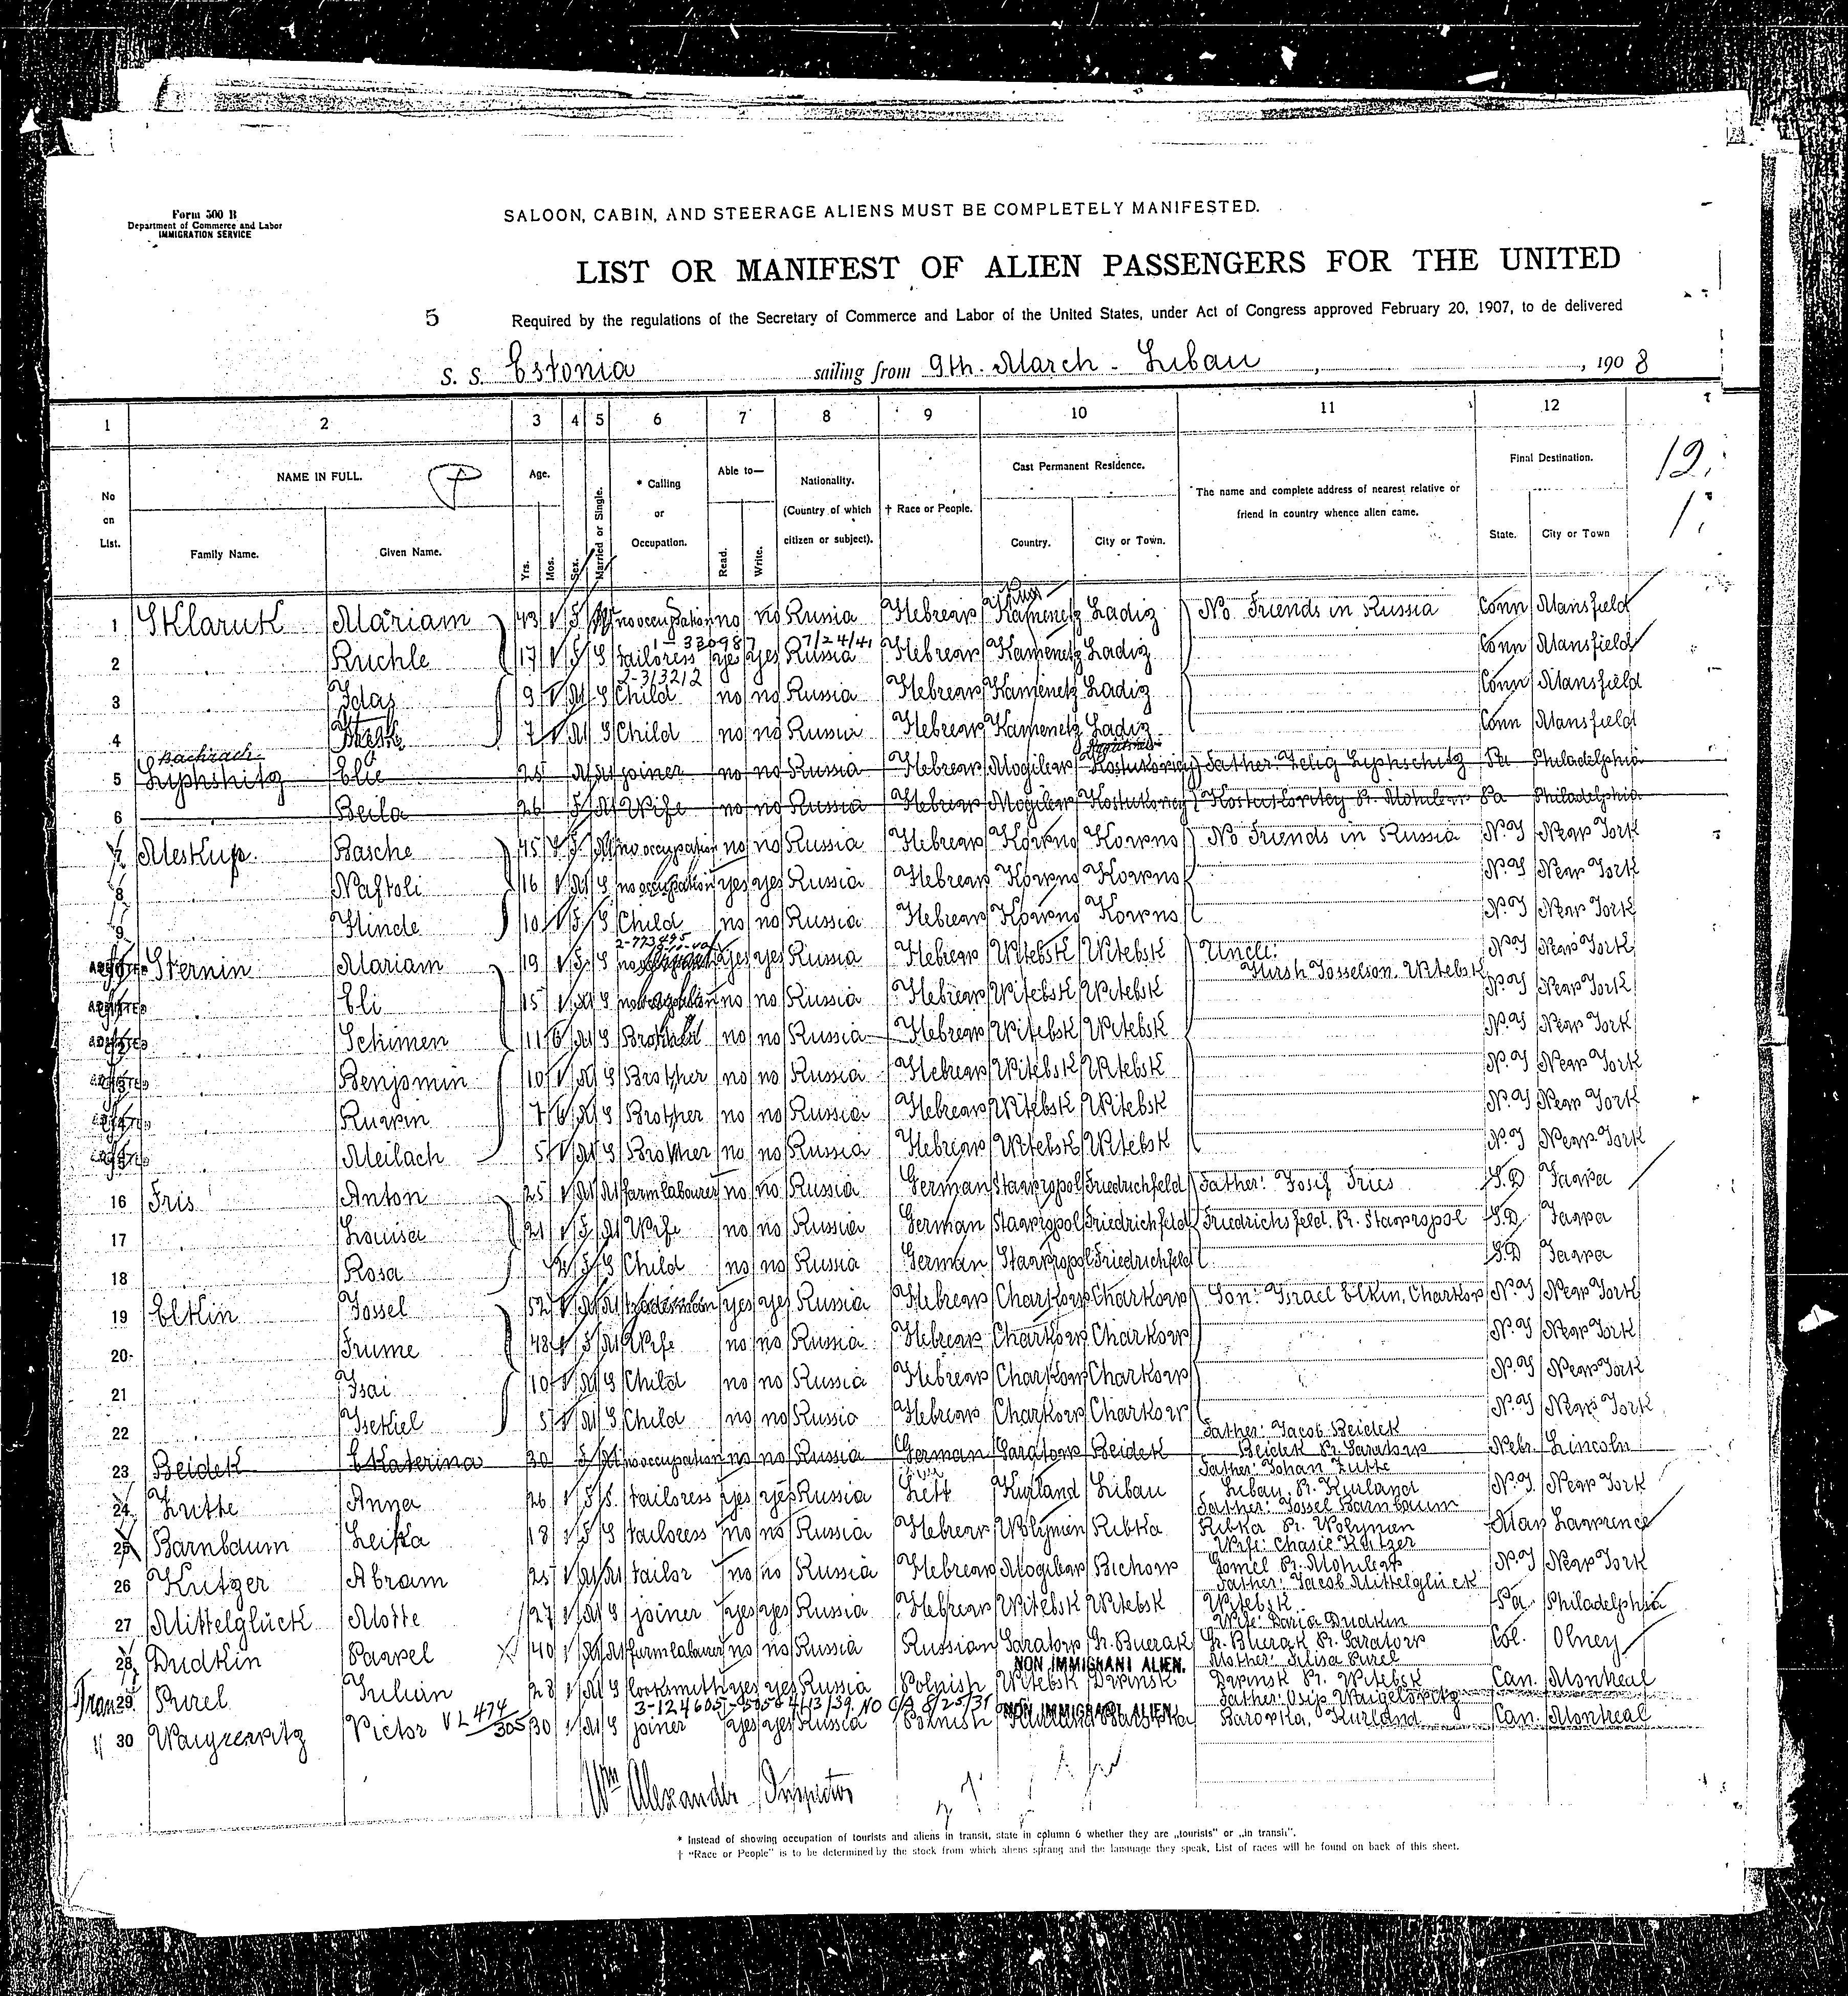 Form 500 B
Department of Commerce and Labor
IMMIGRATION SERVICE
SALOON, CABIN, AND STEERAGE ALIENS MUST BE COMPLETELY MANIFESTED.
LIST OR MANIFEST OF ALIEN PASSENGERS FOR THE UNITED
5 Required by the regulations of the Secretary of Commerce and Labor of the United States, under Act of Congress approved February 20, 1907, to de delivered
S. S. Estonia sailing from 9th. March - Libau , , 1908
1 2 3 4 5 6 7 8 9 10 11 12
No on List. NAME IN FULL. Family Name. Given Name. Age. Yrs. Mos. Sex. Married or Single. * Calling or Occupation. Able to— Read. Write. Nationality. (Country of which citizen or subject). † Race or People. Cast Permanent Residence. Country. City or Town. The name and complete address of nearest relative or friend in country whence alien came. Final Destination. State. City or Town
1 Sklaruk Mariam 43 F M no occupation no no Rusia Hebrew Kamenetz Ladiz No Friends in Russia Conn Mansfield
1-330987 7/24/41
2 Ruchle 17 F S tailoress yes yes Russia Hebrew Kamenetz Ladiz Conn Mansfield
2-313212
3 9 M S Child no no Russia Hebrew Kamenetz Ladiz Conn Mansfield
4 7 M S Child no no Russia Hebrew Kamenetz Ladiz Conn Mansfield
Bachrach
5 Lyphshitz Elie 25 M M joiner no no Russia Hebrew Mogilew Father: Lyphschitz Pa Philadelphia
6 Beila 26 F M Wife no no Russia Hebrew Mogilew Pa Philadelphia
7 Meskup. Basche 45 F M no occupation no no Russia Hebrew Kowno Kowno No Friends in Russia N.Y New York
8 Naftoli 16 M S no occupation yes yes Russia Hebrew Kowno Kowno N.Y New York
9 Hinde 10 F S Child no no Russia Hebrew Kowno Kowno N.Y New York
ADMITTED Sternin Mariam 19 F S yes yes Russia Hebrew Witebsk Witebsk Uncle: N.Y New York
Hirsh Josselson Witebsk
ADMITTED Eli 15 M S no no Russia Hebrew Witebsk Witebsk N.Y New York
ADMITTED Schimen 11 6 M S no no Russia Hebrew Witebsk Witebsk N.Y New York
Benjamin 10 M S Brother no no Russia Hebrew Witebsk Witebsk N.Y New York
Ruwin 7 6 M S Brother no no Russia Hebrew Witebsk Witebsk N.Y New York
Meilach 5 M S Brother no no Russia Hebrew Witebsk Witebsk N.Y New York
16 Fris Anton 25 M M farm labourer no no Russia German Stawropol Friedrichfeld Father: Josif Fries S.D Jawa
17 Louisa 21 F M Wife no no Russia German Stawropol Friedrichfeld Friedrichsfeld, Pr. Stawropol S.D Jawa
18 Rosa F S Child no no Russia German Stawropol Friedrichfeld S.D Jawa
19 Elkin Jossel 52 M M tradesman yes yes Russia Hebrew Charkow Charkow Son: Israel Elkin, Charkow N.Y New York
20 Frume 48 F M Wife no no Russia Hebrew Charkow Charkow N.Y New York
21 Isai 10 M S Child no no Russia Hebrew Charkow Charkow N.Y New York
22 Isekiel 5 M S Child no no Russia Hebrew Charkow Charkow N.Y New York
Father: Jacob Beidek
23 Beidek Ekaterina 30 F M no occupation no no Russia German Saratow Beidek Beidek Pr. Saratow Nebr. Lincoln
Father: Johan Zutte
24 Anna 26 F S. tailoress yes yes Russia Lett Kurland Libau Libau, Pr. Kurland N.Y. New York
Father: Jossel Barnbaum
25 Barnbaum Leika 18 F S tailoress no no Russia Hebrew Wolynien Ribka Ribka Pr. Wolynien Mas Lawrence
Wife: Chasie Kutzer
26 Kutzer Abram 25 M M tailor no no Russia Hebrew Mogilew Bichow Gomel Pr. Mohilew N.Y New York
Father: Jacob Mittelglück
27 Mittelglück Motte 27 M S joiner yes yes Russia Hebrew Witebsk Witebsk Witebsk Pa. Philadelphia
Wife: Daria Dudkin
28 Dudkin Pawel 40 M M farm labourer no no Russia Russian Saratow Gr. Buerak Gr. Buerak Pr. Saratow Col. Olney
NON IMMIGRANT ALIEN. Mother: Alisa Purel
Tran 29 Purel Julian 23 M S locksmith yes yes Russia Polnish Witebsk Dwinsk Dwinsk Pr. Witebsk Can. Montreal
NON IMMIGRANT ALIEN.
30 Victor VL 474/305 30 M S joiner yes yes Russia Polnish Barowka, Kurland Can. Montreal
Wm Alexander Inspector
* Instead of showing occupation of tourists and aliens in transit, state in column 6 whether they are „tourists" or „in transit".
† "Race or People" is to be determined by the stock from which aliens sprang and the language they speak, List of races will be found on back of this sheet.